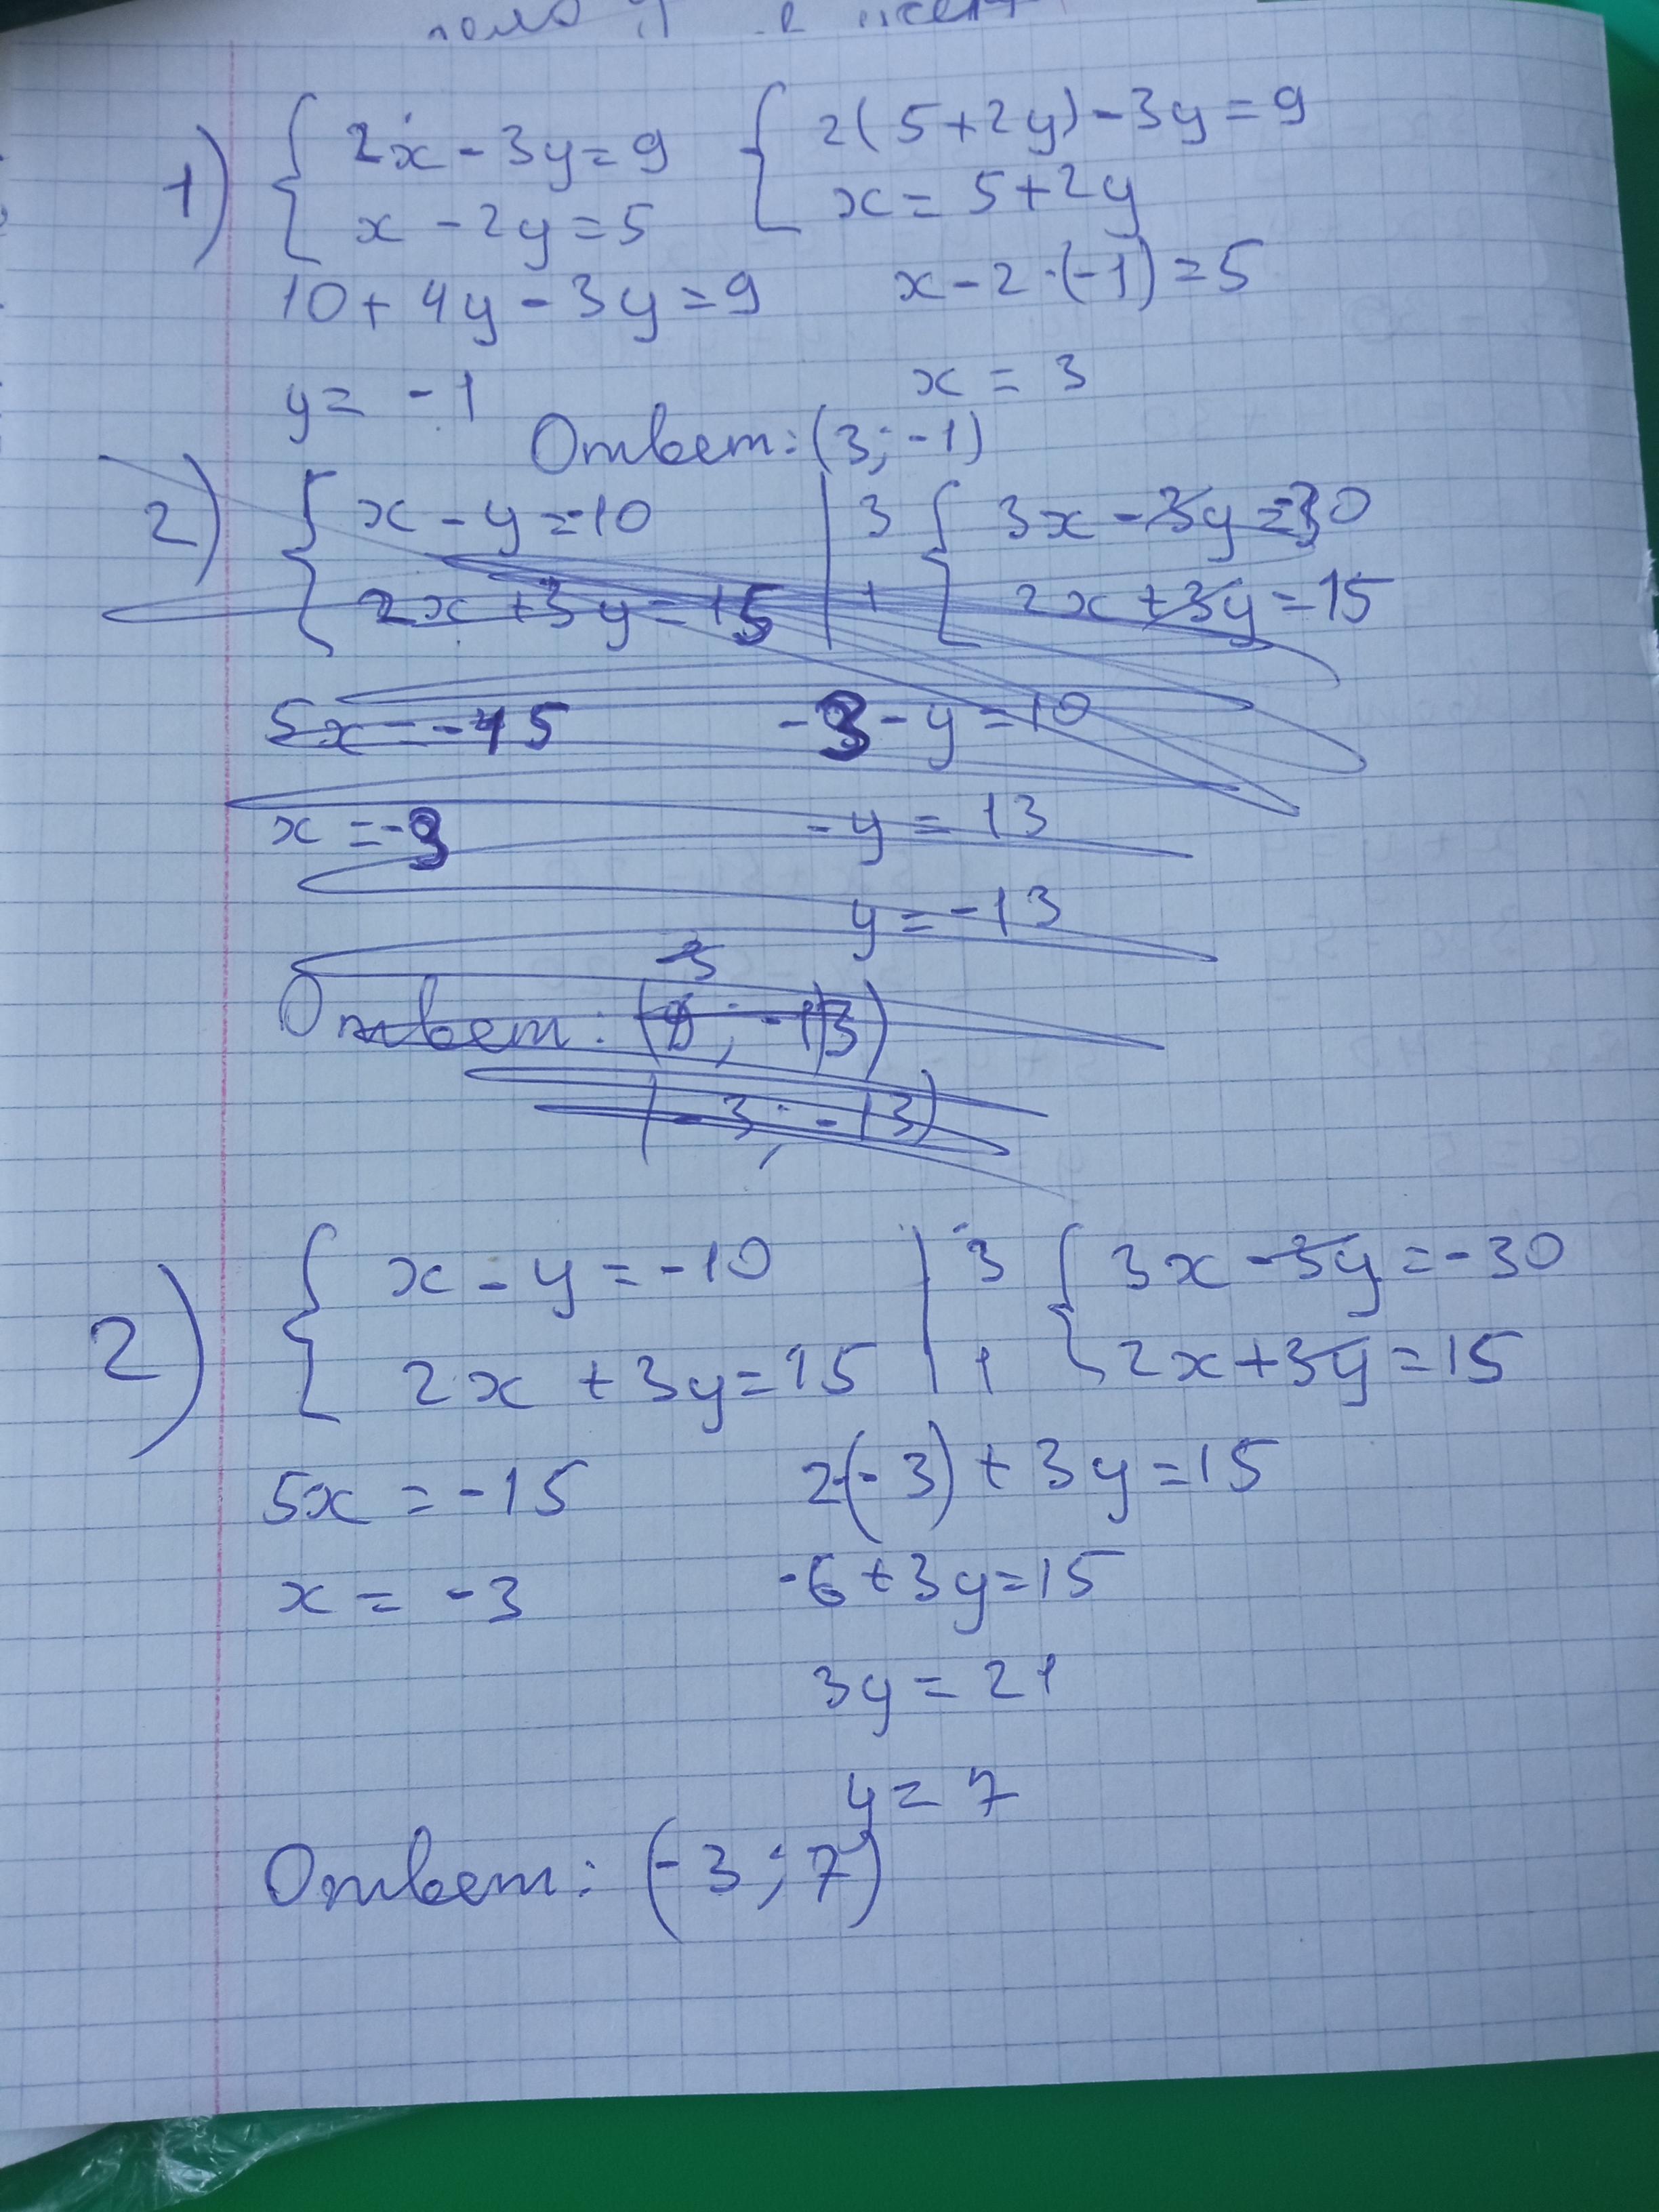 1) { 2x - 3y = 9 { 2(5 + 2y) - 3y = 9
x - 2y = 5 x = 5 + 2y
10 + 4y - 3y = 9 x - 2 · (-1) = 5
y = -1 x = 3
Ответ: (3; -1)
2) { x - y = -10 | 3 { 3x - 3y = -30
2x + 3y = 15 | 1 2x + 3y = 15
5x = -15 -3 - y = 10
x = -3 -y = 13
y = -13
-3
Ответ: ( ; -13)
(-3; -13)
2) { x - y = -10 | 3 { 3x - 3y = -30
2x + 3y = 15 | 1 2x + 3y = 15
5x = -15 2·(-3) + 3y = 15
x = -3 -6 + 3y = 15
3y = 21
y = 7
Ответ: (-3; 7)